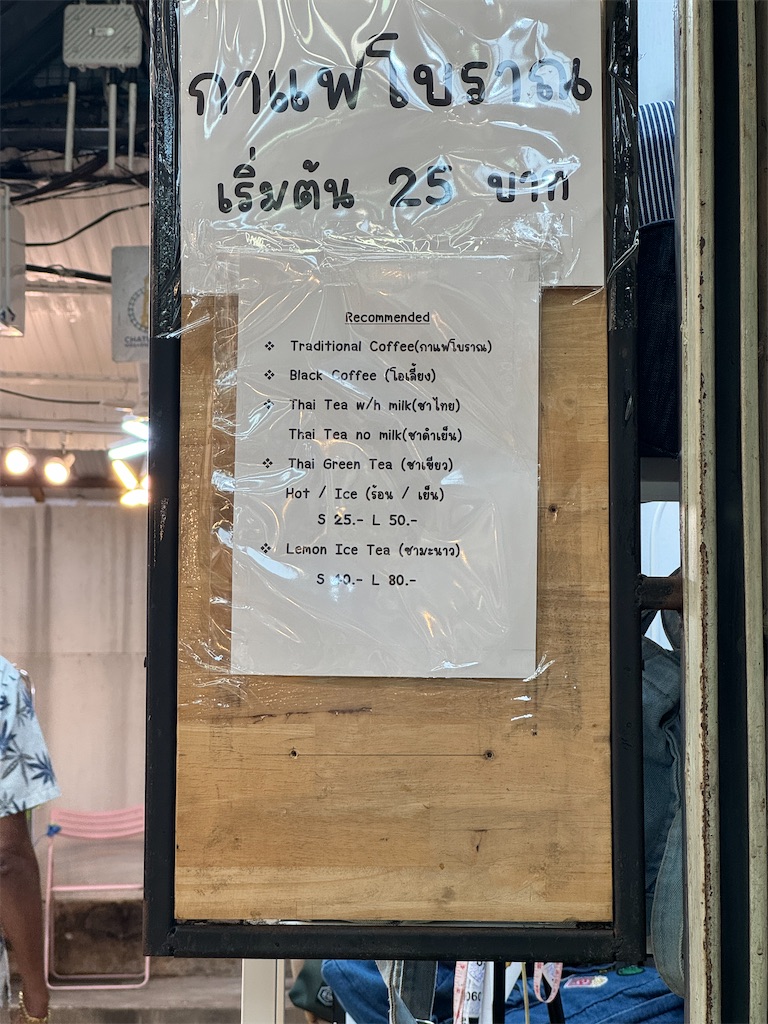 กาแฟโบราณ
เริ่มต้น 25 บาท
Recommended
❖ Traditional Coffee(กาแฟโบราณ)
❖ Black Coffee (โอเลี้ยง)
❖ Thai Tea w/h milk(ชาไทย)
Thai Tea no milk(ชาดำเย็น)
❖ Thai Green Tea (ชาเขียว)
Hot / Ice (ร้อน / เย็น)
S 25.- L 50.-
❖ Lemon Ice Tea (ชามะนาว)
S 40.- L 80.-
060